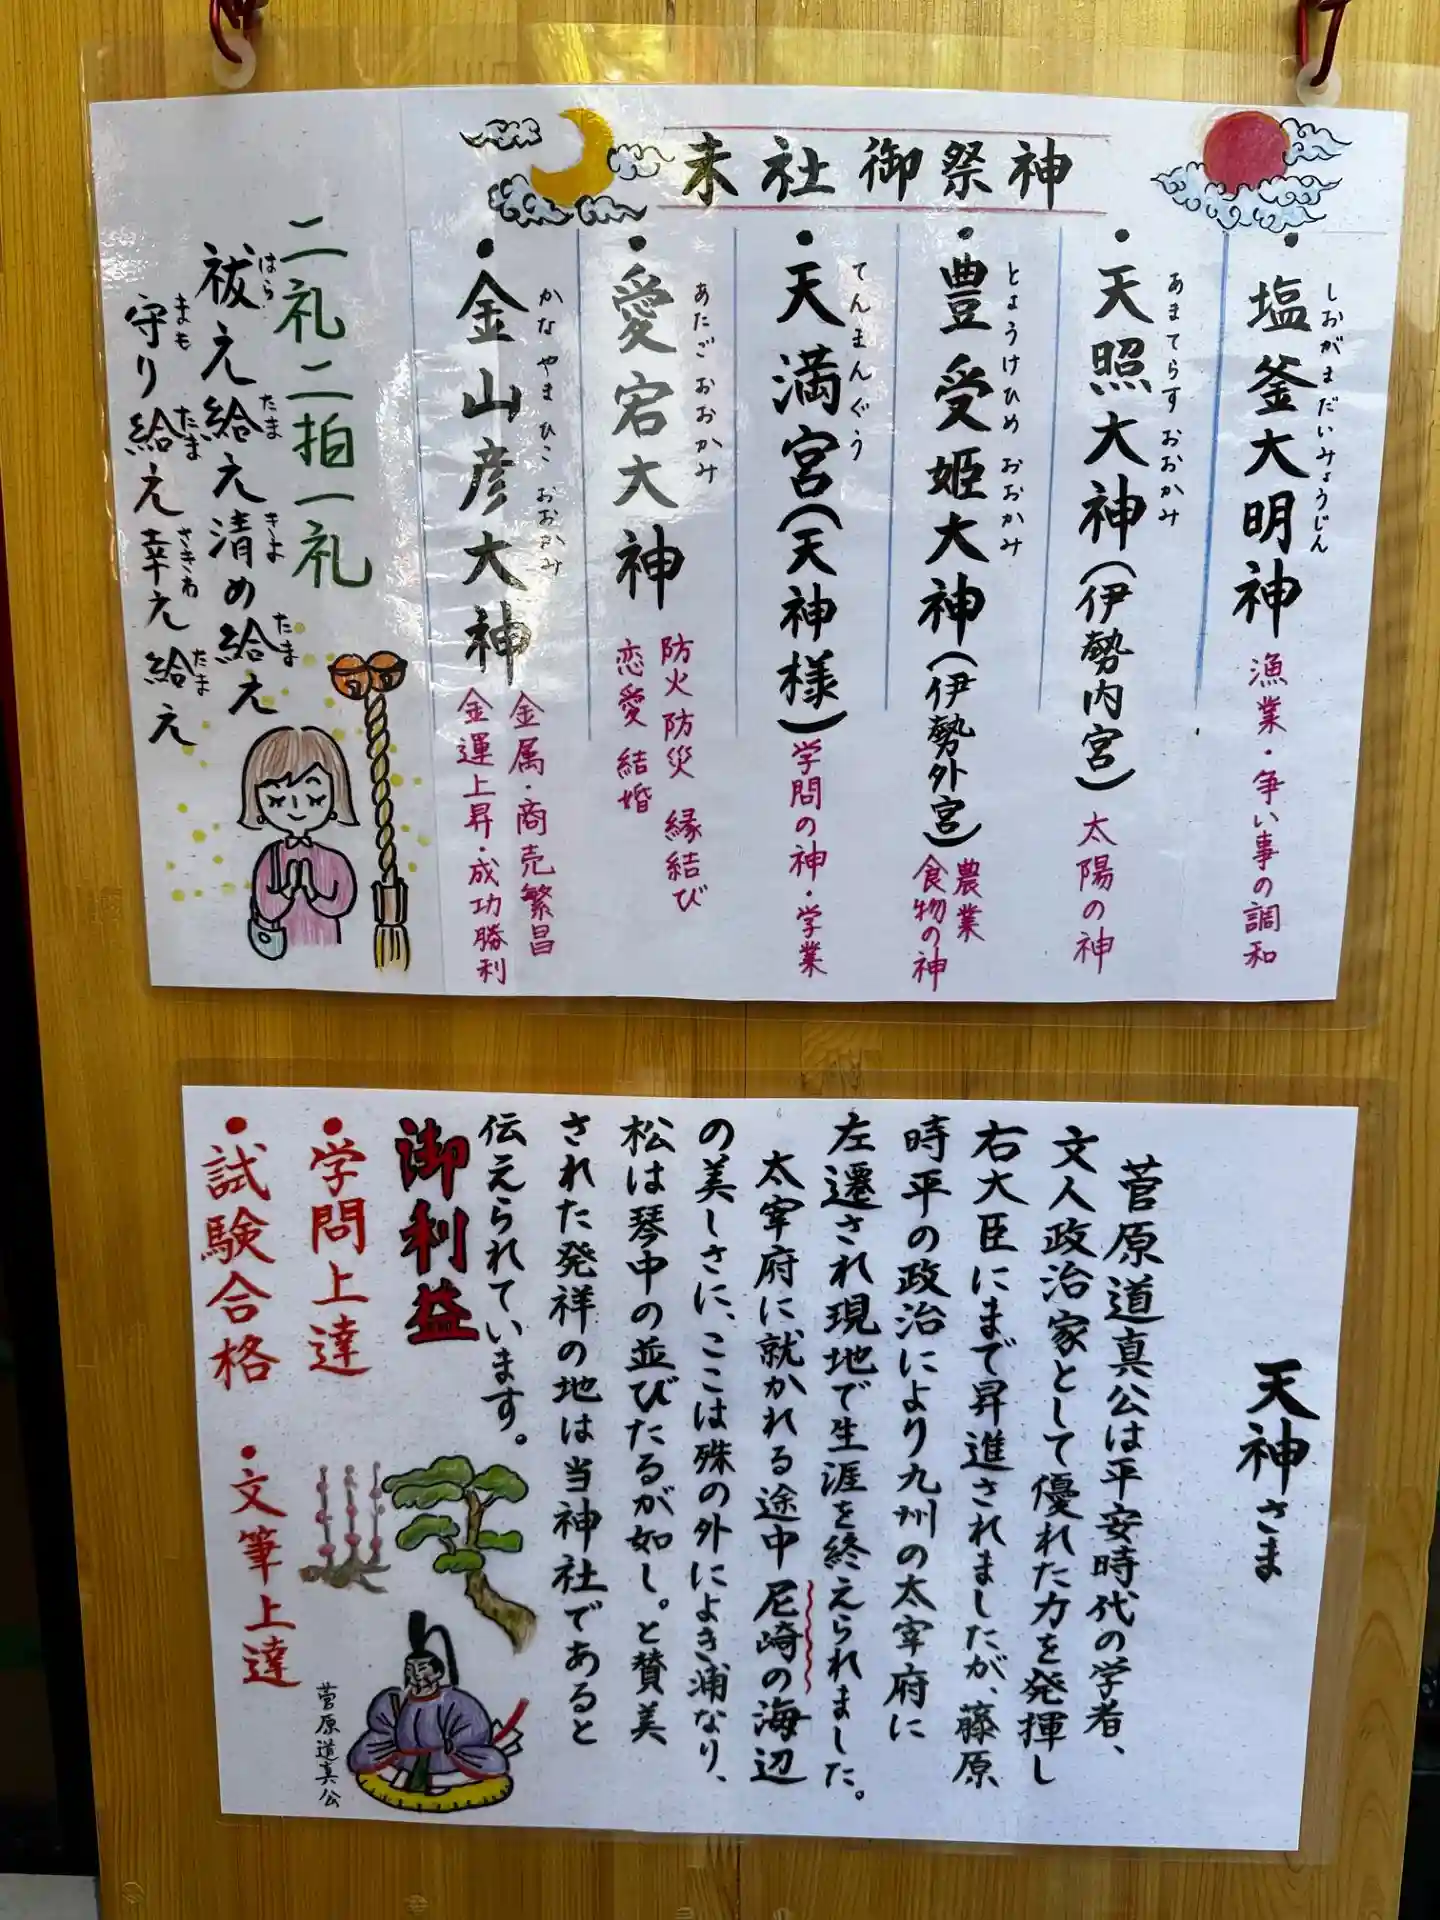 末社御祭神
・塩釜大明神
しおがまだいみょうじん
漁業・争い事の調和
・天照大神(伊勢内宮)
あまてらすおおかみ
太陽の神
・豊受姫大神(伊勢外宮)
とようけひめおおかみ
農業
食物の神
・天満宮(天神様)
てんまんぐう
学問の神・学業
・愛宕大神
あたごおおかみ
防火防災 縁結び
恋愛 結婚
・金山彦大神
かなやまひこおおかみ
金属・商売繁昌
金運上昇・成功勝利
二礼二拍一礼
祓え給え清め給え
はら たま きよ たま
守り給え幸え給え
まも たま さきわ たま
天神さま
菅原道真公は平安時代の学者、
文人政治家として優れた力を発揮し
右大臣にまで昇進されましたが、藤原
時平の政治により九州の太宰府に
左遷され現地で生涯を終えられました。
太宰府に就かれる途中尼崎の海辺
の美しさに、ここは殊の外によき浦なり、
松は琴中の並びたるが如し。と賛美
された発祥の地は当神社であると
伝えられています。
御利益
・学問上達
・試験合格 ・文筆上達
菅原道真公